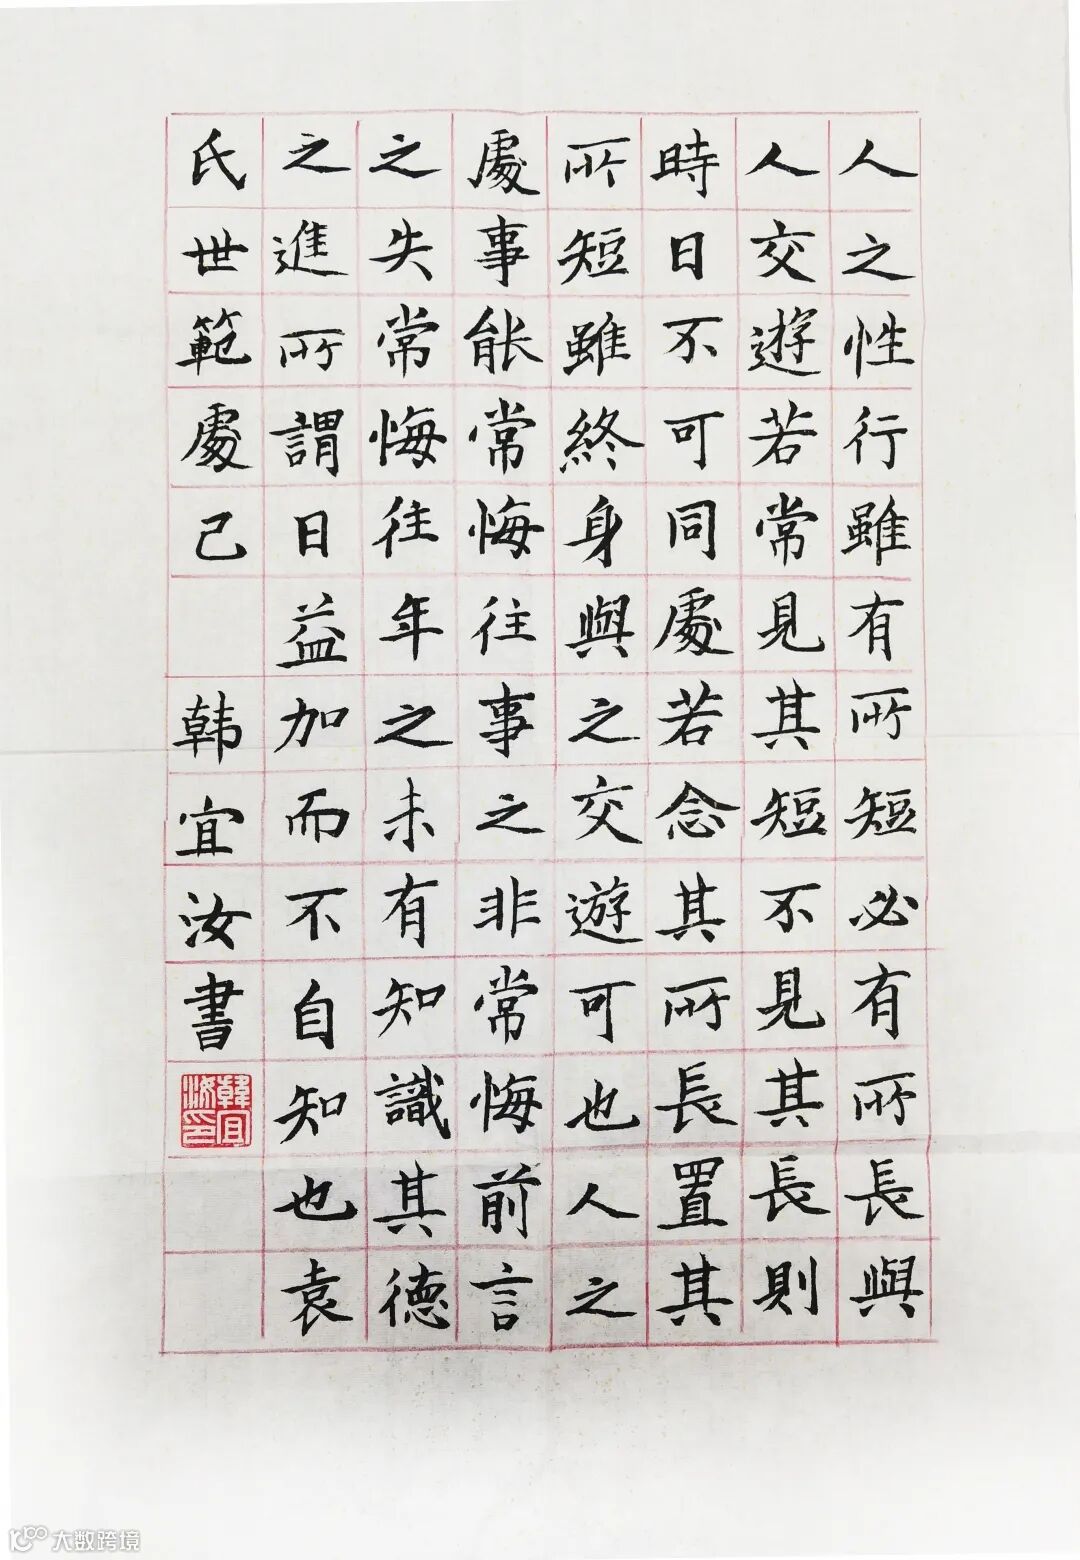 人之性行雖有所短必有所長與
人交遊若常見其短不見其長則
時日不可同處若念其所長置其
所短雖終身與之交遊可也人之
處事能常悔往事之非常悔前言
之失常悔往年之未有知識其德
之進所謂日益加而不自知也袁
氏世範處己 韩宜汝書
韓宜汝印
大数跨境